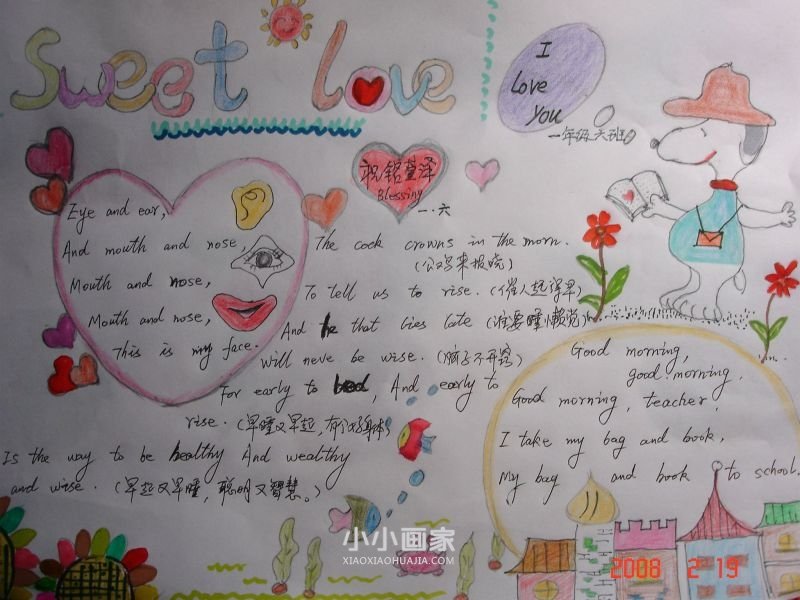 Sweet love
I
Love
You
一年级六班
祝铭萱泽
Blessing
一.六
Eye and ear,
And mouth and nose,
Mouth and nose,
Mouth and nose,
This is my face.
The cock crowns in the morn.
(公鸡来报晓)
To tell us to rise. (催人起得早)
And he that lies late (谁要睡懒觉)
will never be wise. (脑子不开窍)
For early to bed, And early to
rise. (早睡又早起,有个好身体)
Is the way to be healthy And wealthy
and wise. (早起又早睡,聪明又智慧。)
Good morning,
good morning.
Good morning, teacher.
I take my bag and book,
My bag and book to school.
小小画家
XIAOXIAOHUAJIA.COM
2008 2 19